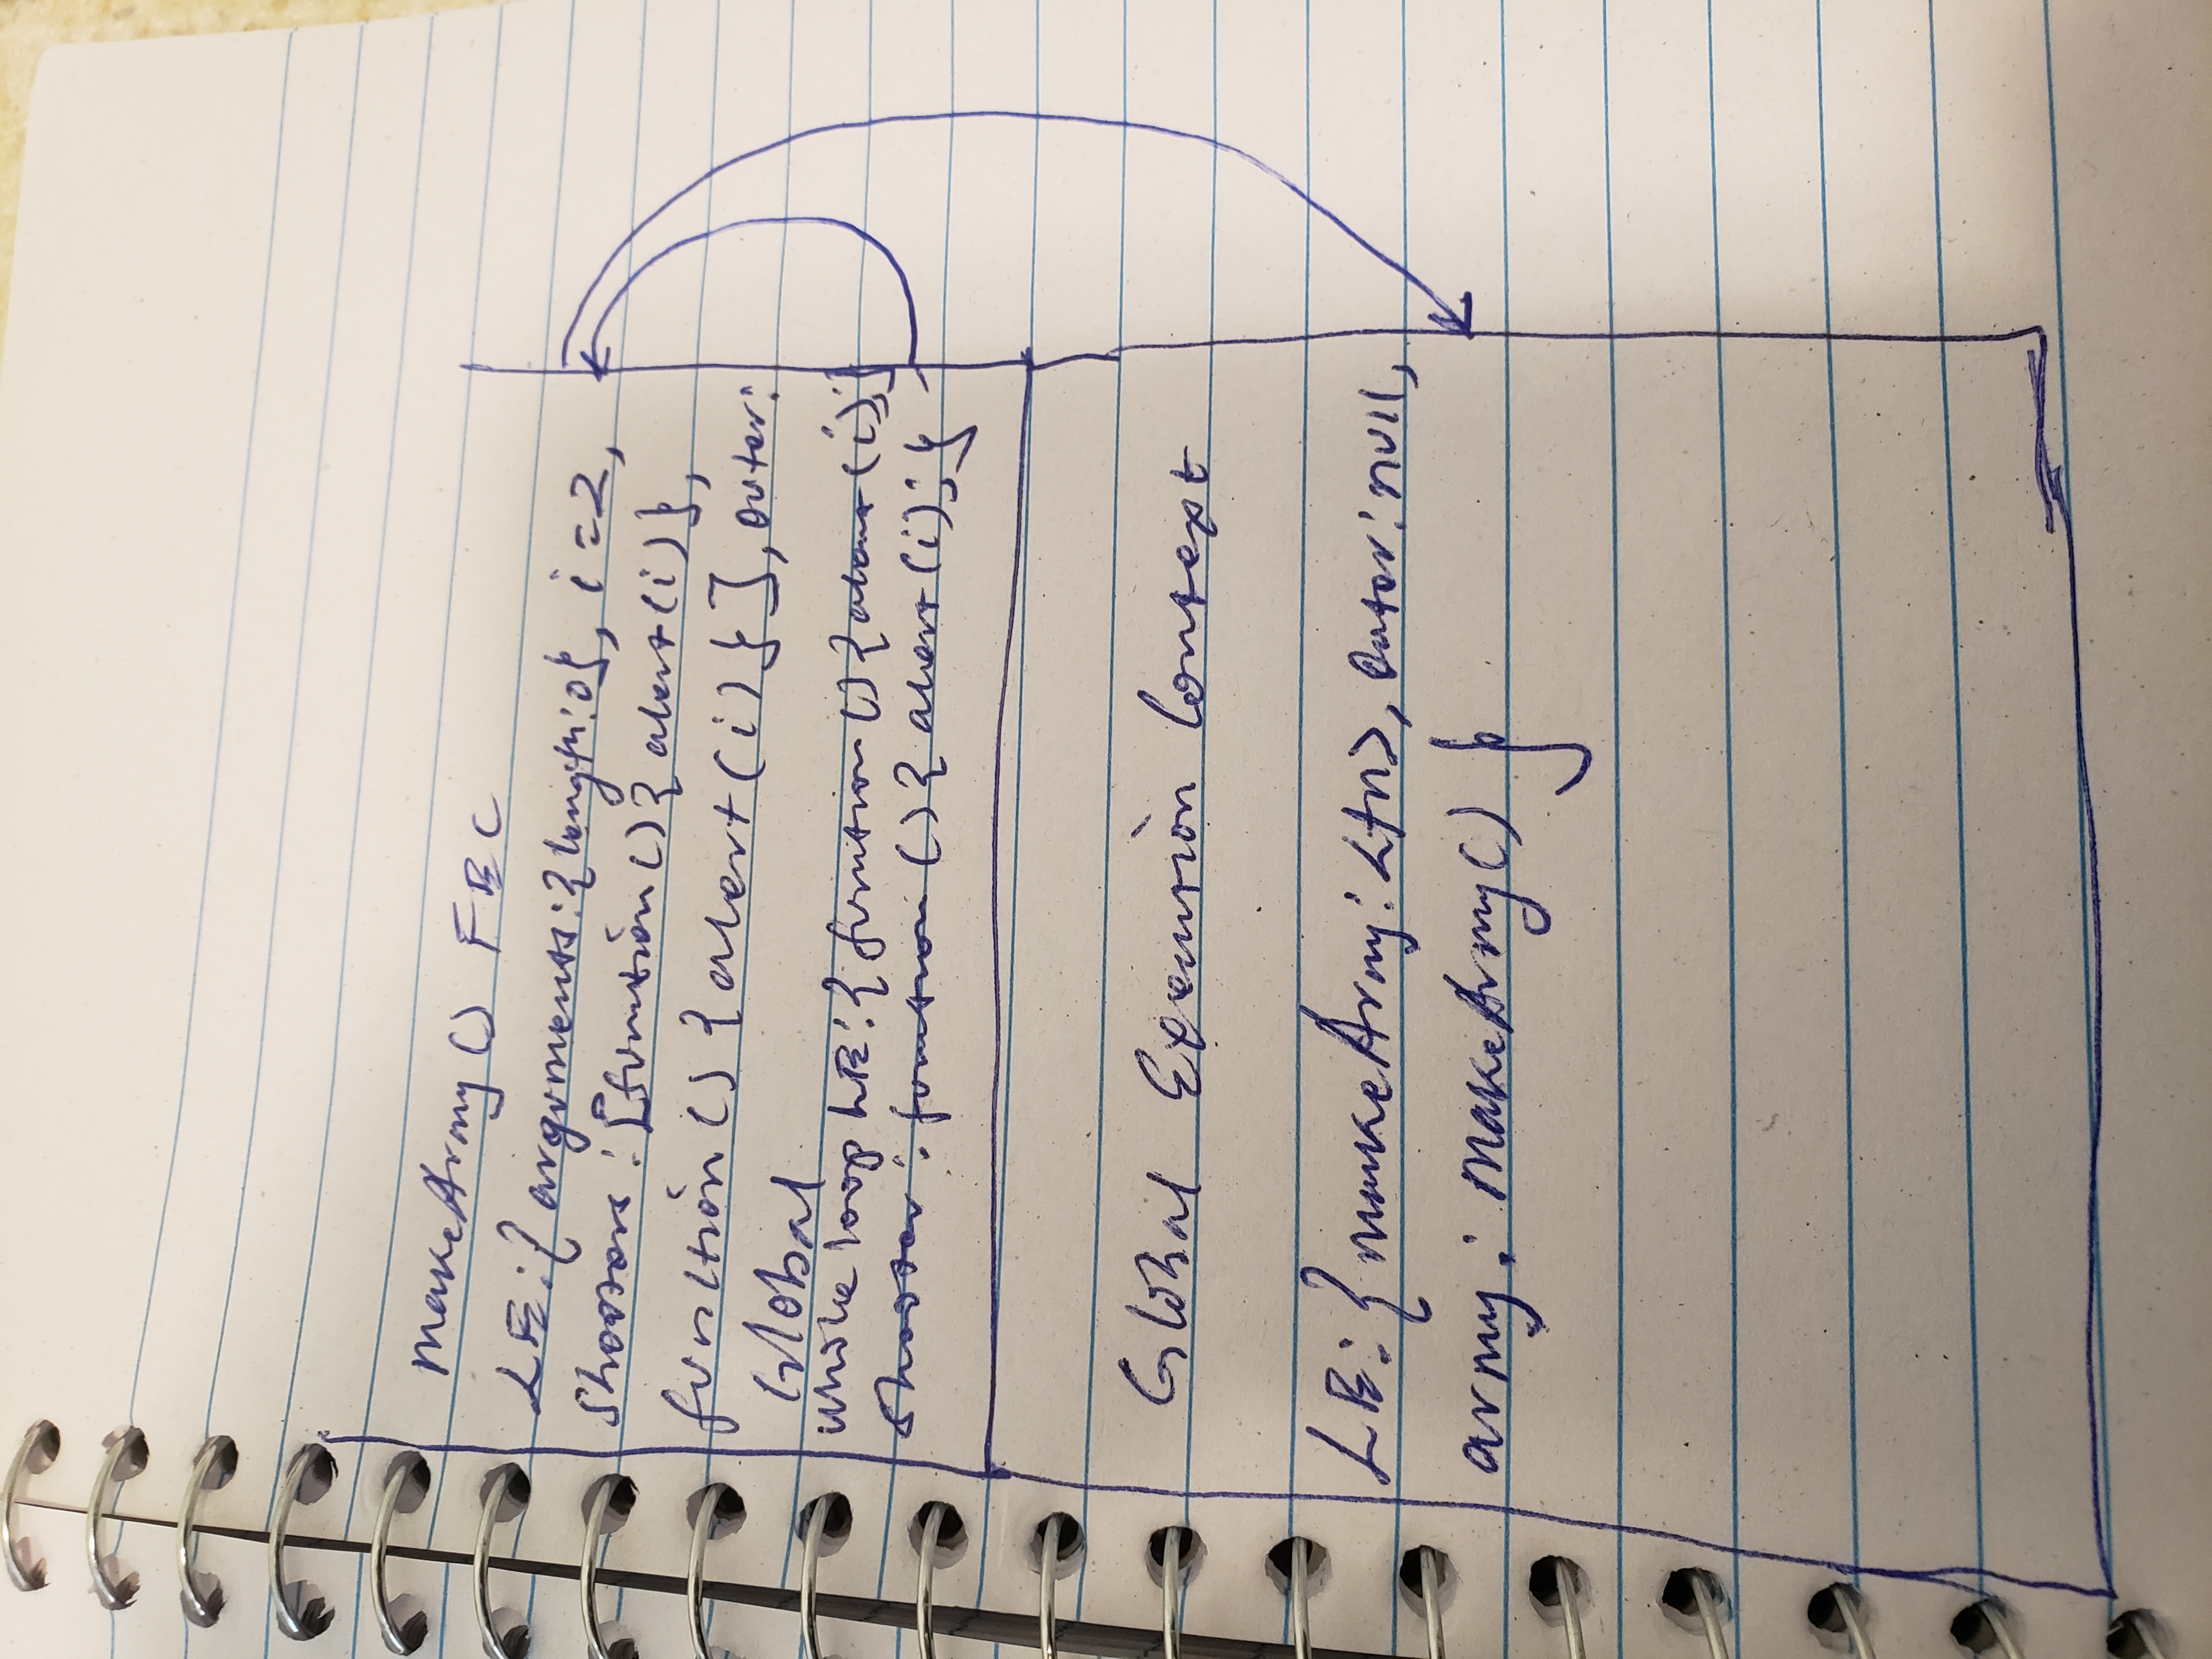 makeArmy() FEC
LE:{ arguments:{length:0}, i=2,
Shooters : [function() { alert(i) },
function() { alert(i) } ], outer:
Global
while loop LE:{ function() { alert(i);}
Shooter : function () { alert(i); }
Global Execution Context
LE: { makeArmy: <fn>, outer: null,
army : makeArmy() }